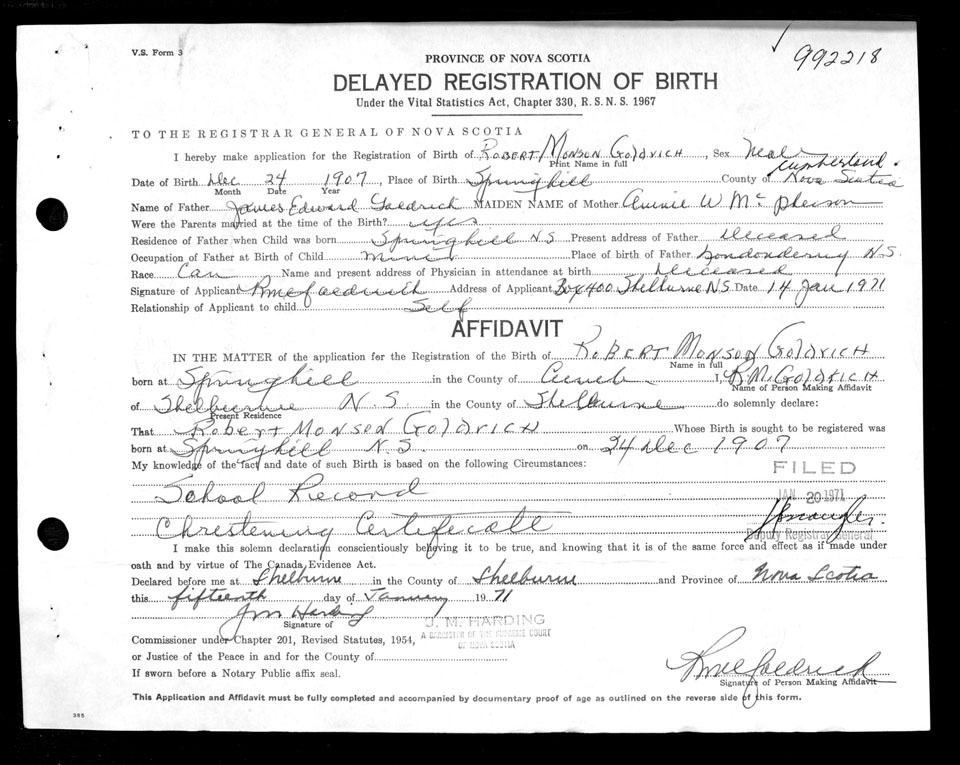 V.S. Form 3
992218
PROVINCE OF NOVA SCOTIA
DELAYED REGISTRATION OF BIRTH
Under the Vital Statistics Act, Chapter 330, R. S. N. S. 1967
TO THE REGISTRAR GENERAL OF NOVA SCOTIA
I hereby make application for the Registration of Birth of ROBERT MONSON GOLDRICH, Sex Male
Print Name in full
Cumberland
Date of Birth Dec 24 1907, Place of Birth Springhill County of Nova Scotia
Month Date Year
Name of Father James Edward Goldrich MAIDEN NAME of Mother Annie W McPherson
Were the Parents married at the time of the Birth? yes
Residence of Father when Child was born Springhill N S Present address of Father Deceased
Occupation of Father at Birth of Child miner Place of birth of Father Londonderry N.S.
Race Can Name and present address of Physician in attendance at birth Deceased
Signature of Applicant R M Goldrich Address of Applicant Box 400 Shelburne N.S. Date 14 Jan 1971
Relationship of Applicant to child Self
AFFIDAVIT
IN THE MATTER of the application for the Registration of the Birth of ROBERT MONSON GOLDRICH
Name in full
born at Springhill in the County of Cumb. I, R.M. GOLDRICH
Name of Person Making Affidavit
of Shelburne N.S. in the County of Shelburne do solemnly declare:
Present Residence
That ROBERT MONSON GOLDRICH Whose Birth is sought to be registered was
born at Springhill N.S. on 24 Dec 1907
My knowledge of the fact and date of such Birth is based on the following Circumstances:
FILED
School Record
JAN 20 1971
Christening Certificate
Deputy Registrar General
I make this solemn declaration conscientiously believing it to be true, and knowing that it is of the same force and effect as if made under
oath and by virtue of The Canada Evidence Act.
Declared before me at Shelburne in the County of Shelburne and Province of Nova Scotia
this fifteenth day of January 1971
J M Harding
Signature of
J. M. HARDING
A BARRISTER OF THE SUPREME COURT
OF NOVA SCOTIA
Commissioner under Chapter 201, Revised Statutes, 1954,
or Justice of the Peace in and for the County of
If sworn before a Notary Public affix seal.
R M Goldrich
Signature of Person Making Affidavit
This Application and Affidavit must be fully completed and accompanied by documentary proof of age as outlined on the reverse side of this form.
385